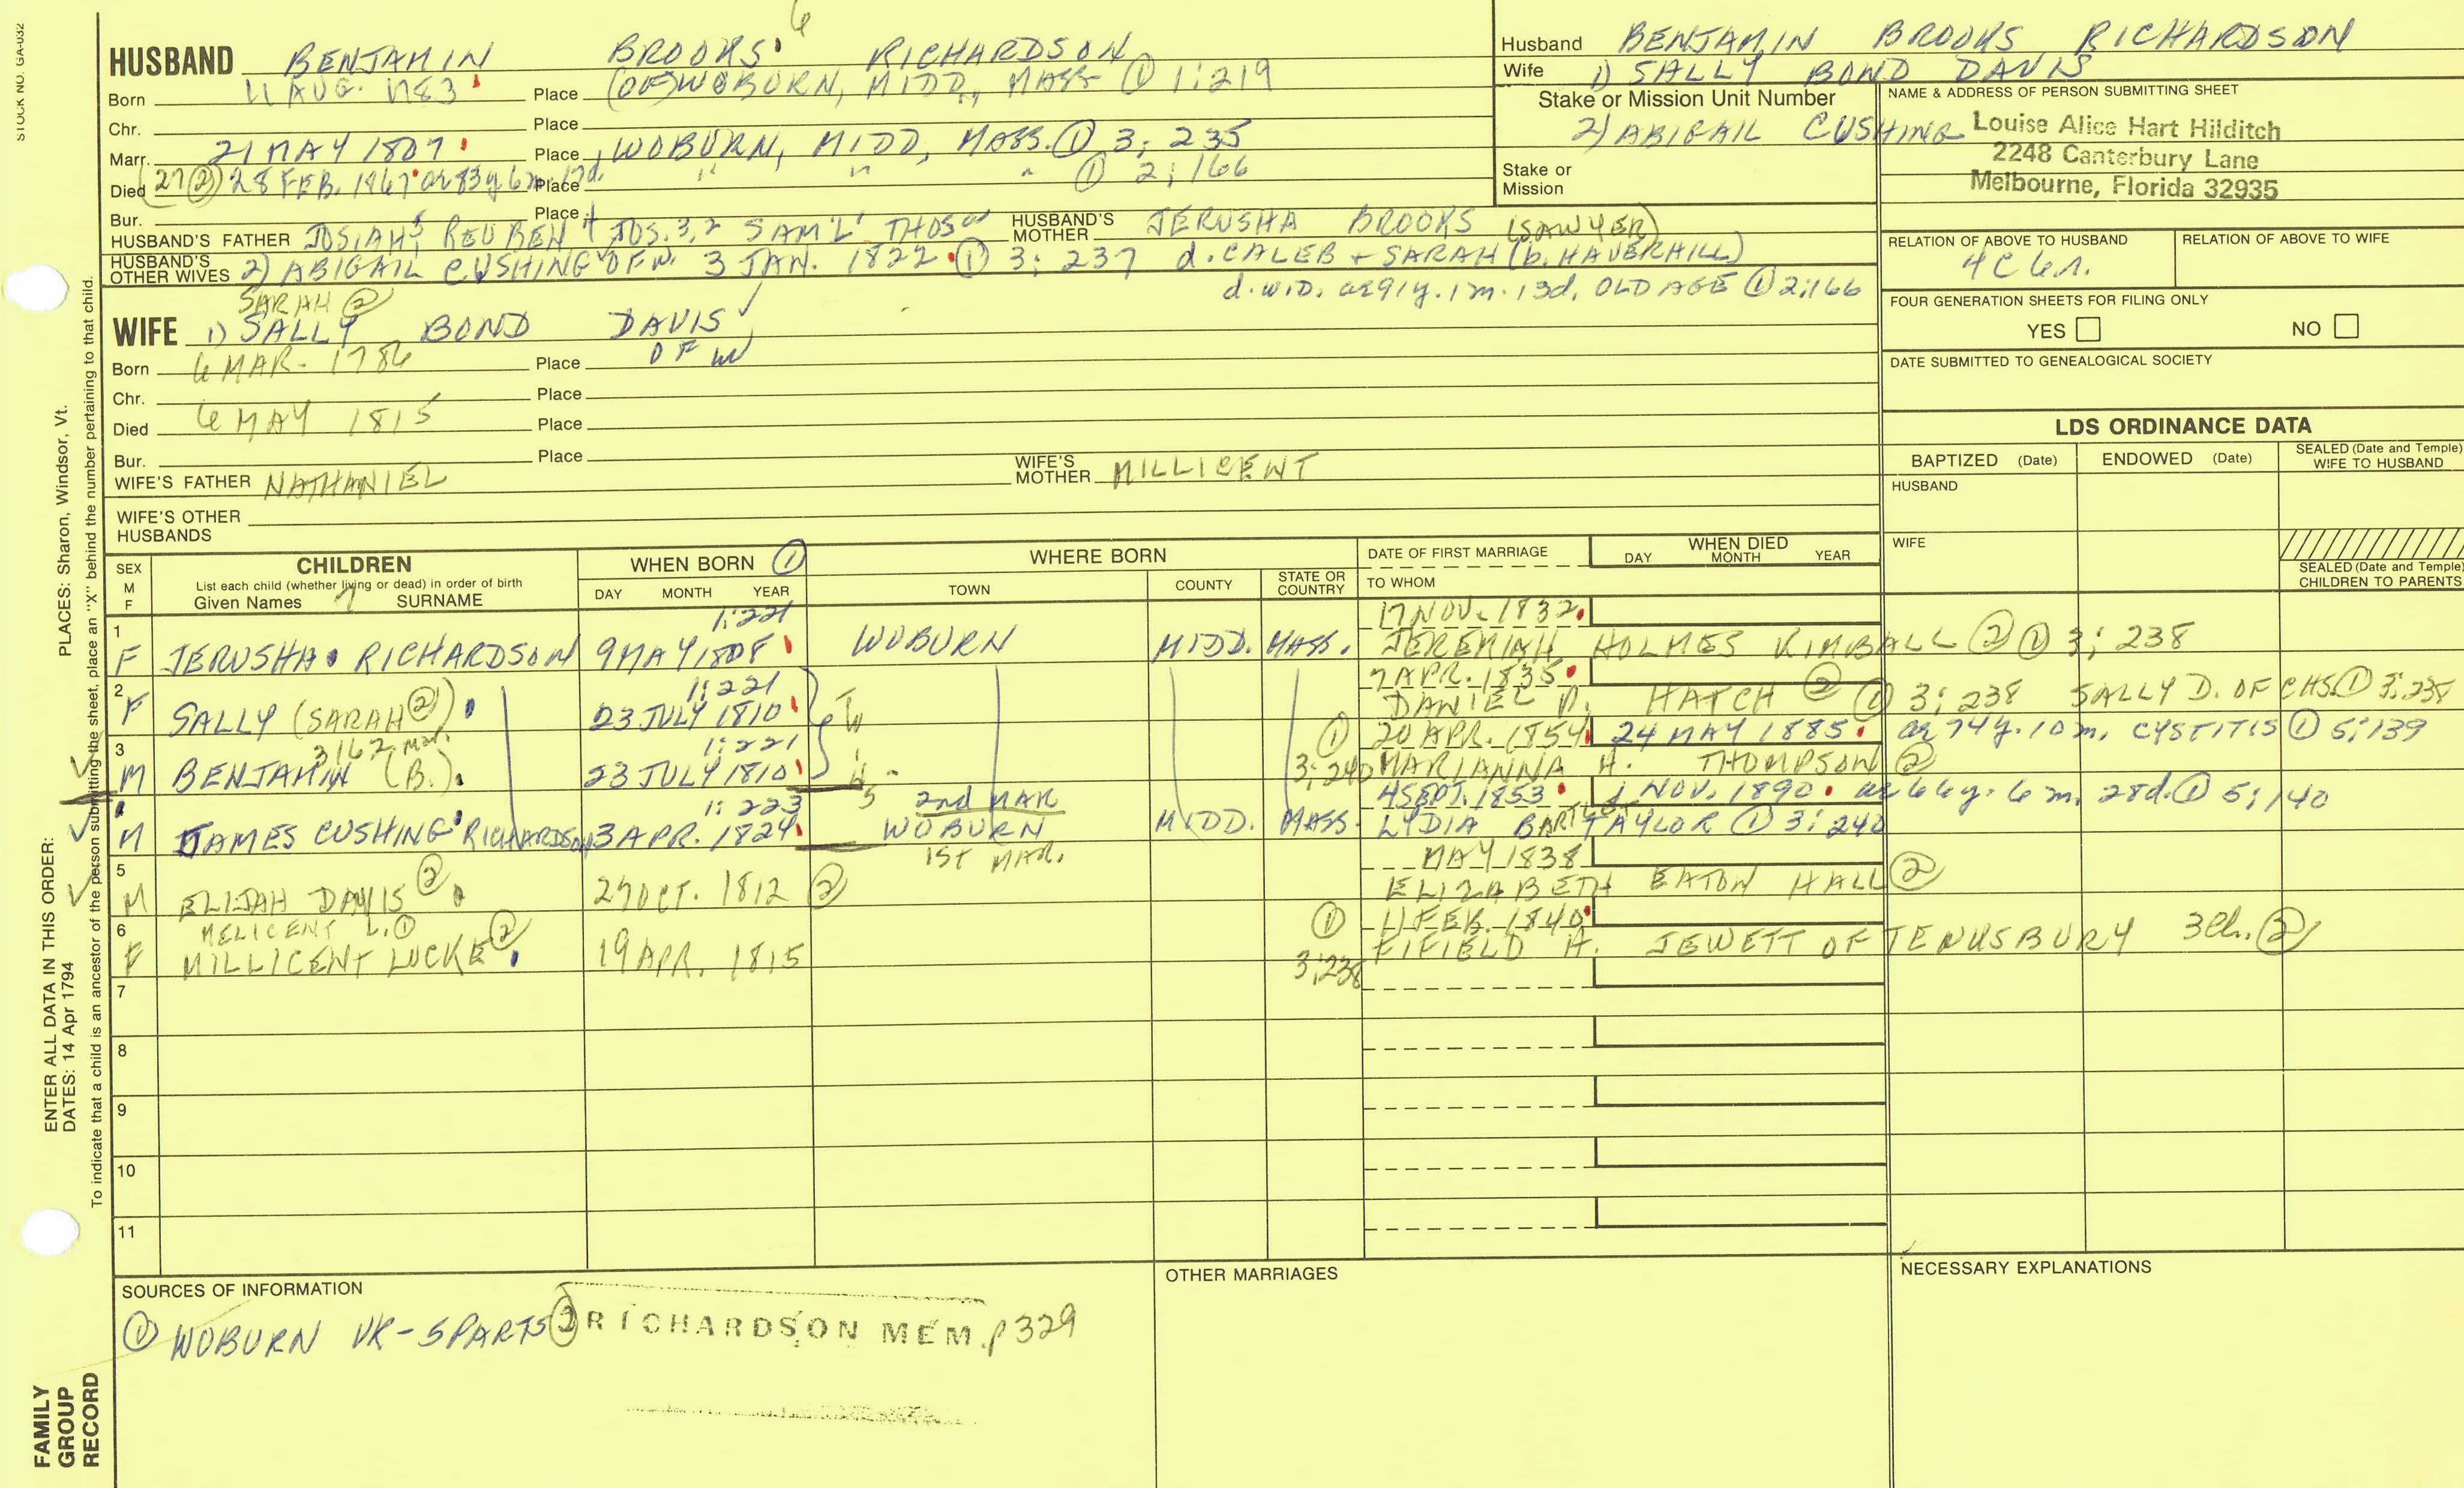 STOCK NO. GA-032
6
HUSBAND BENJAMIN BROOKS RICHARDSON
Born 11 AUG. 1783 Place (OF) WOBURN, MIDD., MASS ① 1:219
Chr. Place
Marr. 21 MAY 1807 Place WOBURN, MIDD, MASS. ① 3; 235
Died (27②) 28 FEB. 1867 ae 83y 6m. 17d. Place " " " ① 2; 166
Bur. Place
HUSBAND'S FATHER JOSIAH5, REUBEN4 JOS. 3,2 SAM'L' THOS HUSBAND'S MOTHER JERUSHA BROOKS (SAWYER)
HUSBAND'S OTHER WIVES 2) ABIGAIL CUSHING OF W. 3 JAN. 1822 ① 3: 237 d. CALEB + SARAH (b. HAVERHILL)
d. WID. ae 91y. 1m. 13d. OLD AGE ① 2:166
SARAH ②
WIFE 1) SALLY BOND DAVIS
Born 6 MAR. 1786 Place OF W
Chr. Place
Died 6 MAY 1815 Place
Bur. Place
WIFE'S FATHER NATHANIEL WIFE'S MOTHER MILLICENT
WIFE'S OTHER HUSBANDS
Husband BENJAMIN BROOKS RICHARDSON
Wife 1) SALLY BOND DAVIS
Stake or Mission Unit Number
2) ABIGAIL CUSHING
Stake or Mission
NAME & ADDRESS OF PERSON SUBMITTING SHEET
Louise Alice Hart Hilditch
2248 Canterbury Lane
Melbourne, Florida 32935
RELATION OF ABOVE TO HUSBAND RELATION OF ABOVE TO WIFE
4C 6r.
FOUR GENERATION SHEETS FOR FILING ONLY
YES NO
DATE SUBMITTED TO GENEALOGICAL SOCIETY
LDS ORDINANCE DATA
BAPTIZED (Date) ENDOWED (Date) SEALED (Date and Temple) WIFE TO HUSBAND
HUSBAND
WIFE
SEALED (Date and Temple) CHILDREN TO PARENTS
SEX M F
CHILDREN
List each child (whether living or dead) in order of birth
Given Names 7 SURNAME
WHEN BORN ①
DAY MONTH YEAR
WHERE BORN
TOWN COUNTY STATE OR COUNTRY
DATE OF FIRST MARRIAGE
TO WHOM
WHEN DIED
DAY MONTH YEAR
1 1:221 17 NOV. 1832
F JERUSHA RICHARDSON 9 MAY 1808 WOBURN MIDD. MASS. JEREMIAH HOLMES KIMBALL ② ① 3; 238
2 1:221 7 APR. 1835
F SALLY (SARAH②) 23 JULY 1810 DANIEL HATCH ② ① 3; 238 SALLY D. OF CHS. ① 3:238
3 3167 Mar. 1:221 ① 20 APR. 1854 24 MAY 1885 ae 74y. 10m. CYSTITIS ① 5;139
M BENJAMIN (B.) 23 JULY 1810 3; 240 MARIANNA H. THOMPSON ②
1: 223 2nd MAR 4 SEPT. 1853 1 NOV. 1890 ae 66y. 6m. 28d. ① 5; 140
M JAMES CUSHING RICHARDSON 3 APR. 1824 WOBURN MIDD. MASS. LYDIA BARTLETT TAYLOR ① 3; 240
5 1ST MAR. MAY 1838
M ELIJAH DAVIS ② 27 OCT. 1812 ② ELIZABETH EATON HALL ②
6 MELICENT L. ① ① 11 FEB. 1840
F MILLICENT LUCKE ② 19 APR. 1815 3;238 FIFIELD H. JEWETT OF TENUSBURY 3ch. ②
7
8
9
10
11
SOURCES OF INFORMATION
① WOBURN VR-5PARTS ② RICHARDSON MEM. p 329
OTHER MARRIAGES
NECESSARY EXPLANATIONS
ENTER ALL DATA IN THIS ORDER:
DATES: 14 Apr 1794 PLACES: Sharon, Windsor, Vt.
To indicate that a child is an ancestor of the person submitting the sheet, place an "X" behind the number pertaining to that child.
FAMILY
GROUP
RECORD